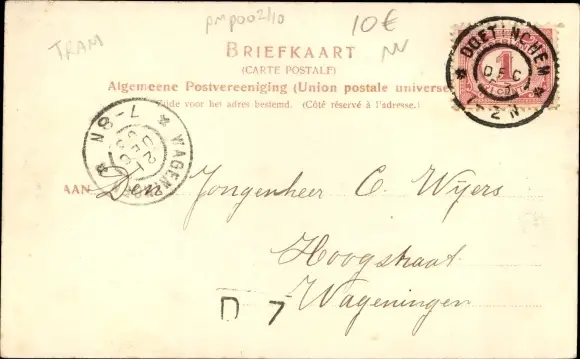 pmp002/10
10€
TRAM
BRIEFKAART
(CARTE POSTALE)
Algemeene Postvereeniging (Union postale universe
Zijde voor het adres bestemd. (Côté réservé à l'adresse.)
DOETINCHEM
DEC
1-2 N
1
WAGENINGEN
7-8 N
AAN Den Jongenheer C. Wijers
Hoogstraat
Wageningen
D 7